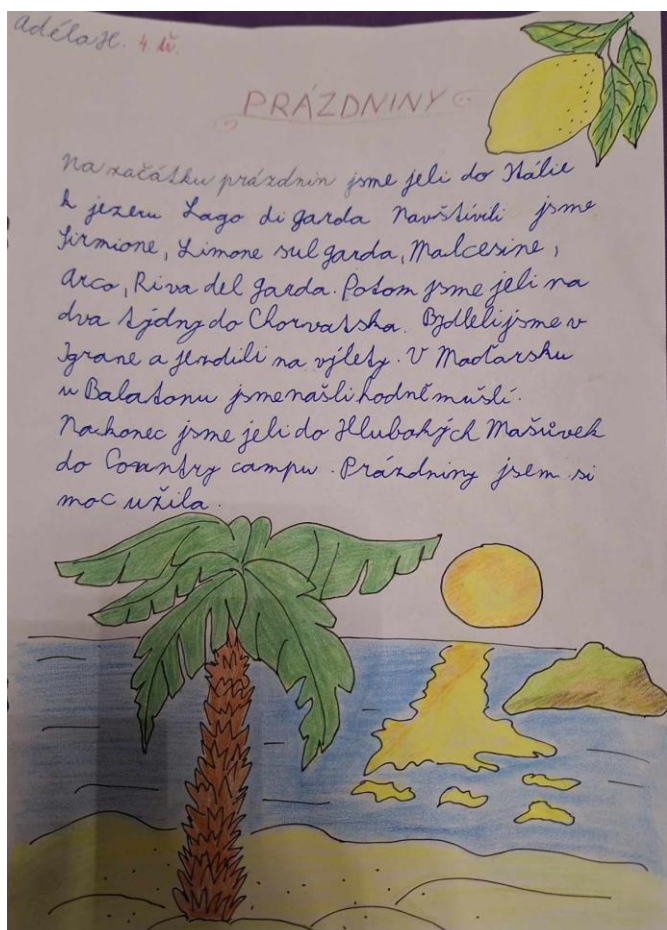 Adéla H. 4. tř.
PRÁZDNINY
Na začátku prázdnin jsme jeli do Itálie
k jezeru Lago di garda Navštívili jsme
Sirmione, Limone sul garda, Malcesine,
Arco, Riva del garda. Potom jsme jeli na
dva týdny do Chorvatska. Bydleli jsme v
Igrane a jezdili na výlety. V Maďarsku
u Balatonu jsme našli hodně mušlí.
Nakonec jsme jeli do Hlubokých Mašůvek
do Country campu. Prázdniny jsem si
moc užila.